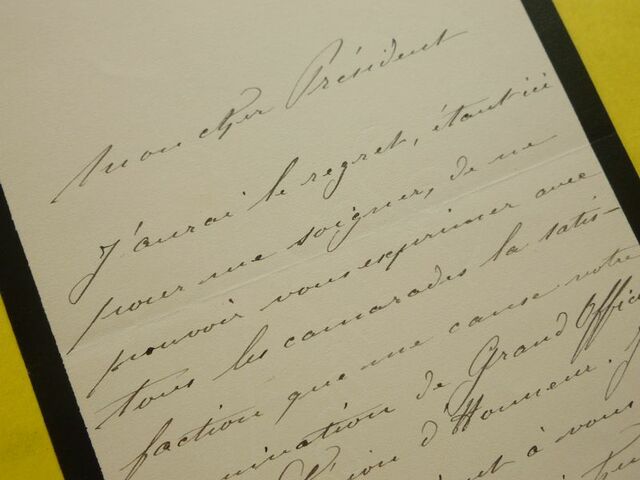 Mon cher Président
J'aurai le regret, étant ici
pour me soigner, de ne
pouvoir vous exprimer avec
tous les camarades la satis-
faction que me cause votre
mination de Grand Offic
d'Honneur. J
à vous